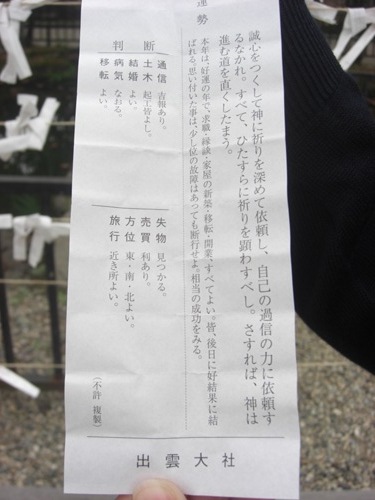 運勢
誠心をつくして神に祈りを深めて依頼し、自己の過信の力に依頼す
るなかれ。すべて、ひたすらに祈りを顕わすべし。さすれば、神は
進む道を直くしたまう。
本年は、好運の年で、求職・縁談・家屋の新築・移転・開業、すべてよい。皆、後日に好結果に結
ばれる。思い付いた事は、少し位の故障はあっても断行せよ。相当の成功をみる。
判断
通信 吉報あり。
土木 起工皆よし。
結婚 よい。
病気 なおる。
移転 よい。
失物 見つかる。
売買 利あり。
方位 東・南・北よい。
旅行 近き所よい。
(不許 複製)
出雲大社